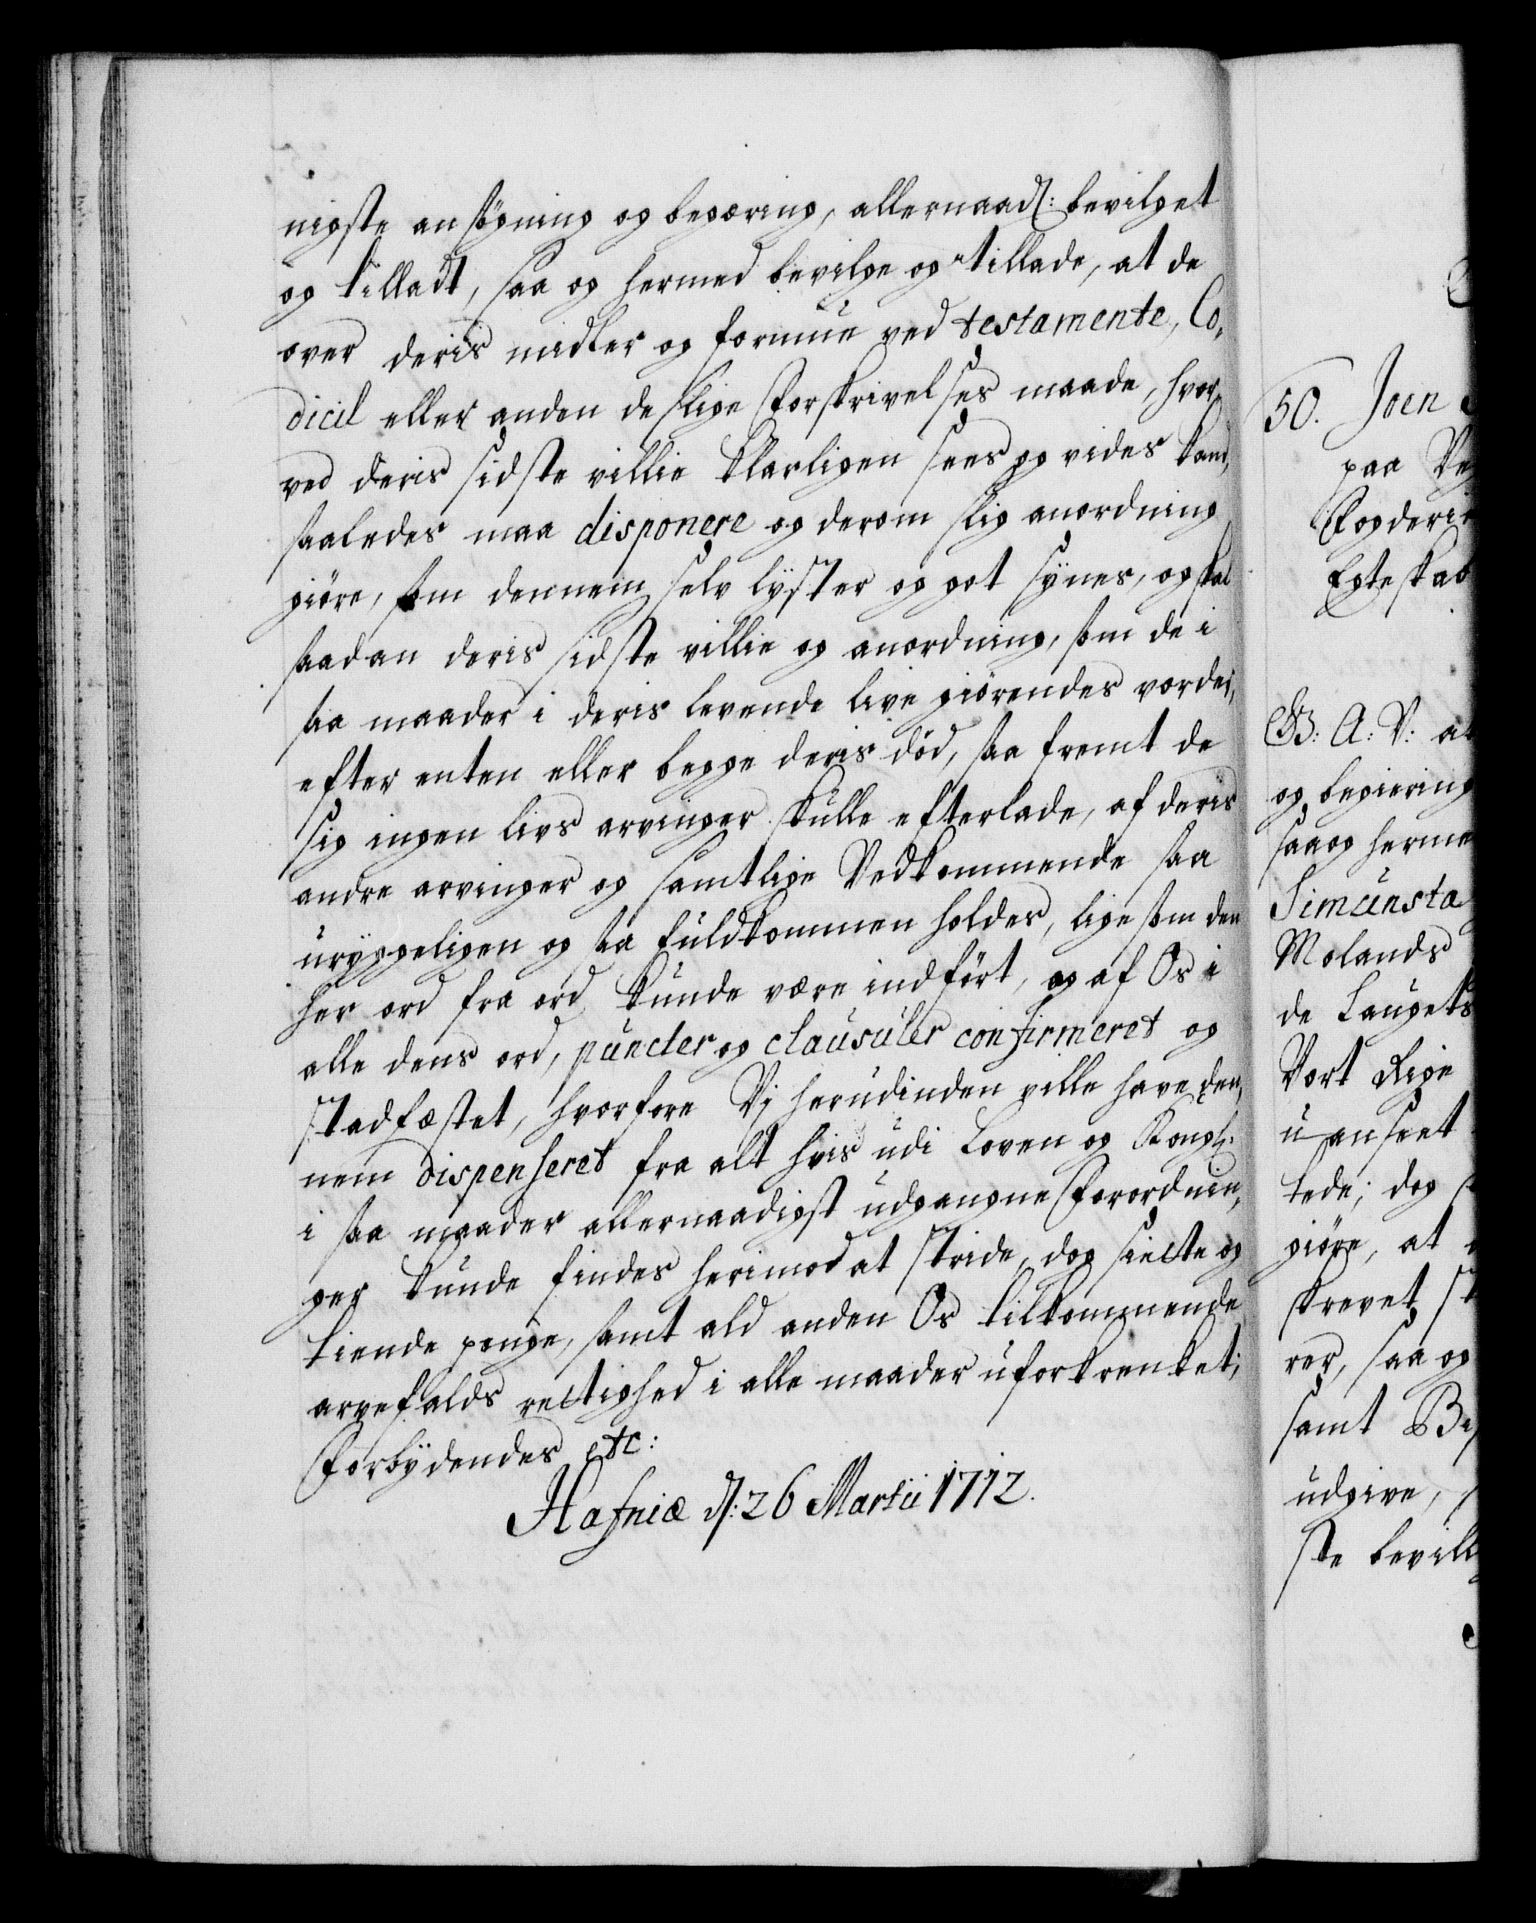 nigste ansøgning og begæring, allernaad: bevilget
og tilladt, saa og hermed bevilge og tillade, at de
over deris midler og formue ved testamente, Co-
dicil eller anden deslige Forskrivelses maade, hvor-
ved deris sidste villie klarligen sees og vides kand,
saaledes maa disponere og derom slig anordning
giøre, som dennem self lyster og got sÿnes, og skal
saadan deris sidste villie og anordning, som de i
saa maader i deris levende live giørendes vorder,
efter enten eller begge deris død, saa fremt de
sig ingen livs arvinger skulle efterlade, af deris
andre arvinger og samtlige Vedkommende saa
uryggeligen og saa fuldkommen holdes, lige som den
her ord fra ord kunde være indført, og af Os i
alle dens ord, puncter og clausuler confirmeret og
stadfæstet, hvorfore Vj herudinden ville have den-
nem dispenseret fra alt hvis udi Loven og Kongl:
i saa maader allernaadigst udgangne Forordnin-
ger kunde findes herimod at stride, dog siette og
tiende penge, samt ald anden Os tilkommende
arvefalds rettighed i alle maader uforkrenket;
Forbÿdendes etc:
Hafniæ d: 26 Martii 1712.
50. Joen
paa Ve
Fogderi
Egteskab
G: A: V: at
og begiering
saa og herme
Simunsta
Molands
de Laugets
Vort Rige
uanseet
lede; dog
giøre, at
skrevet st
rer, saa og
samt Be
udgive,
ste bevill